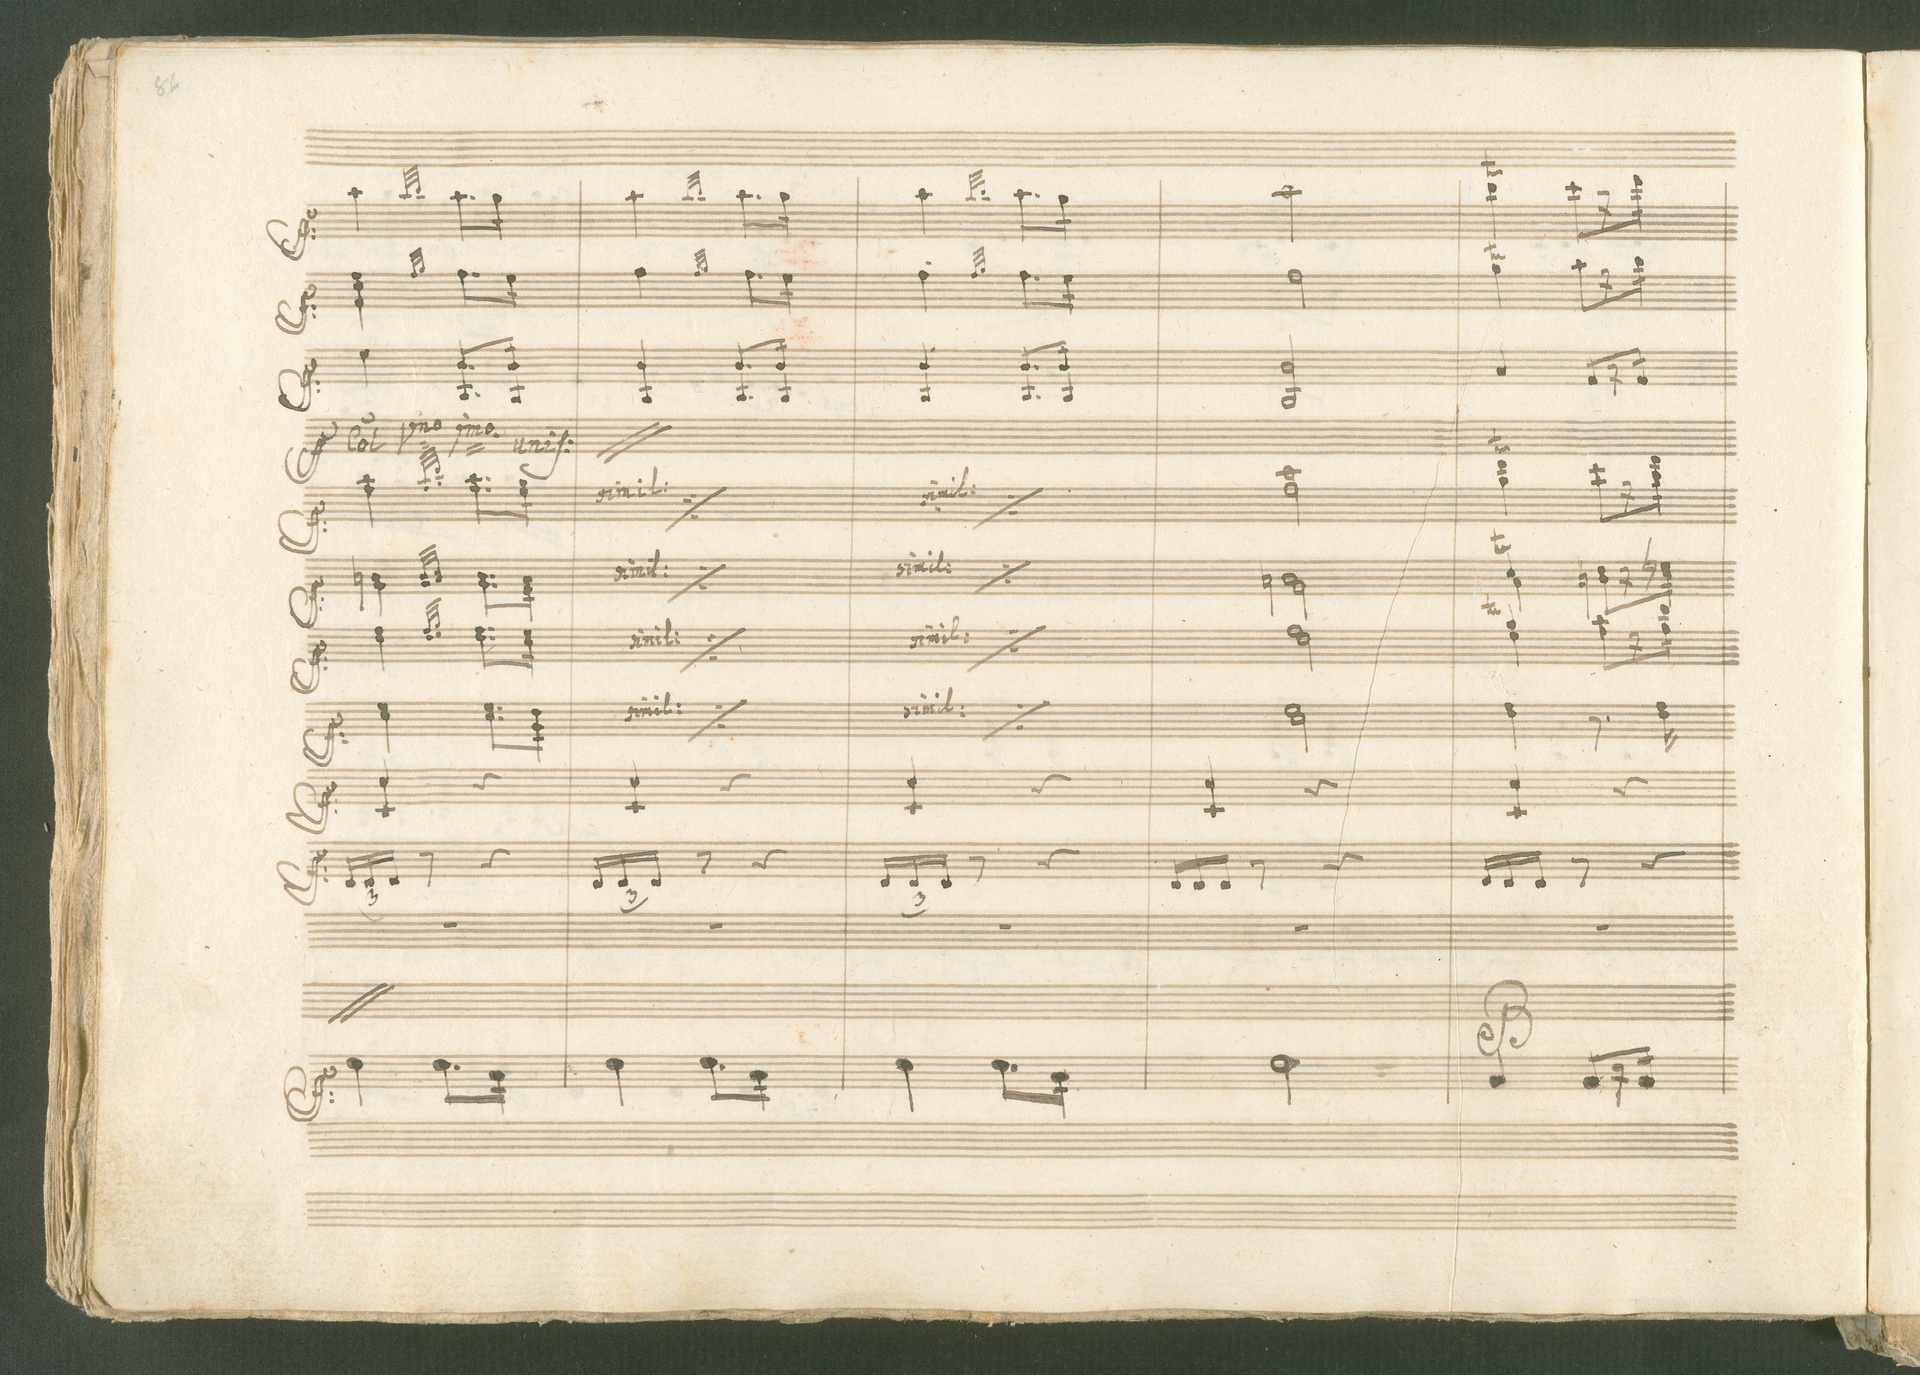 86
Col Vmo jmo. unis:
simil: simil:
simil: simil:
simil: simil:
simil: simil:
3 3 3